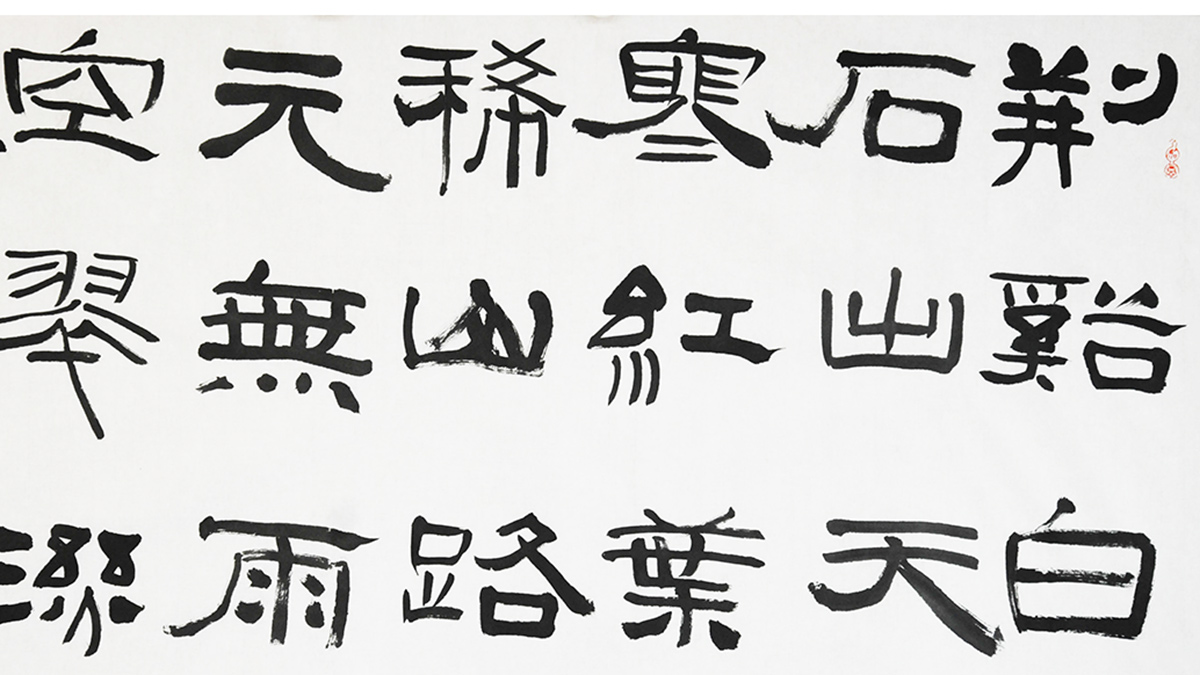 荆谿白
石出天
寒紅葉
稀山路
元無雨
空翠濕